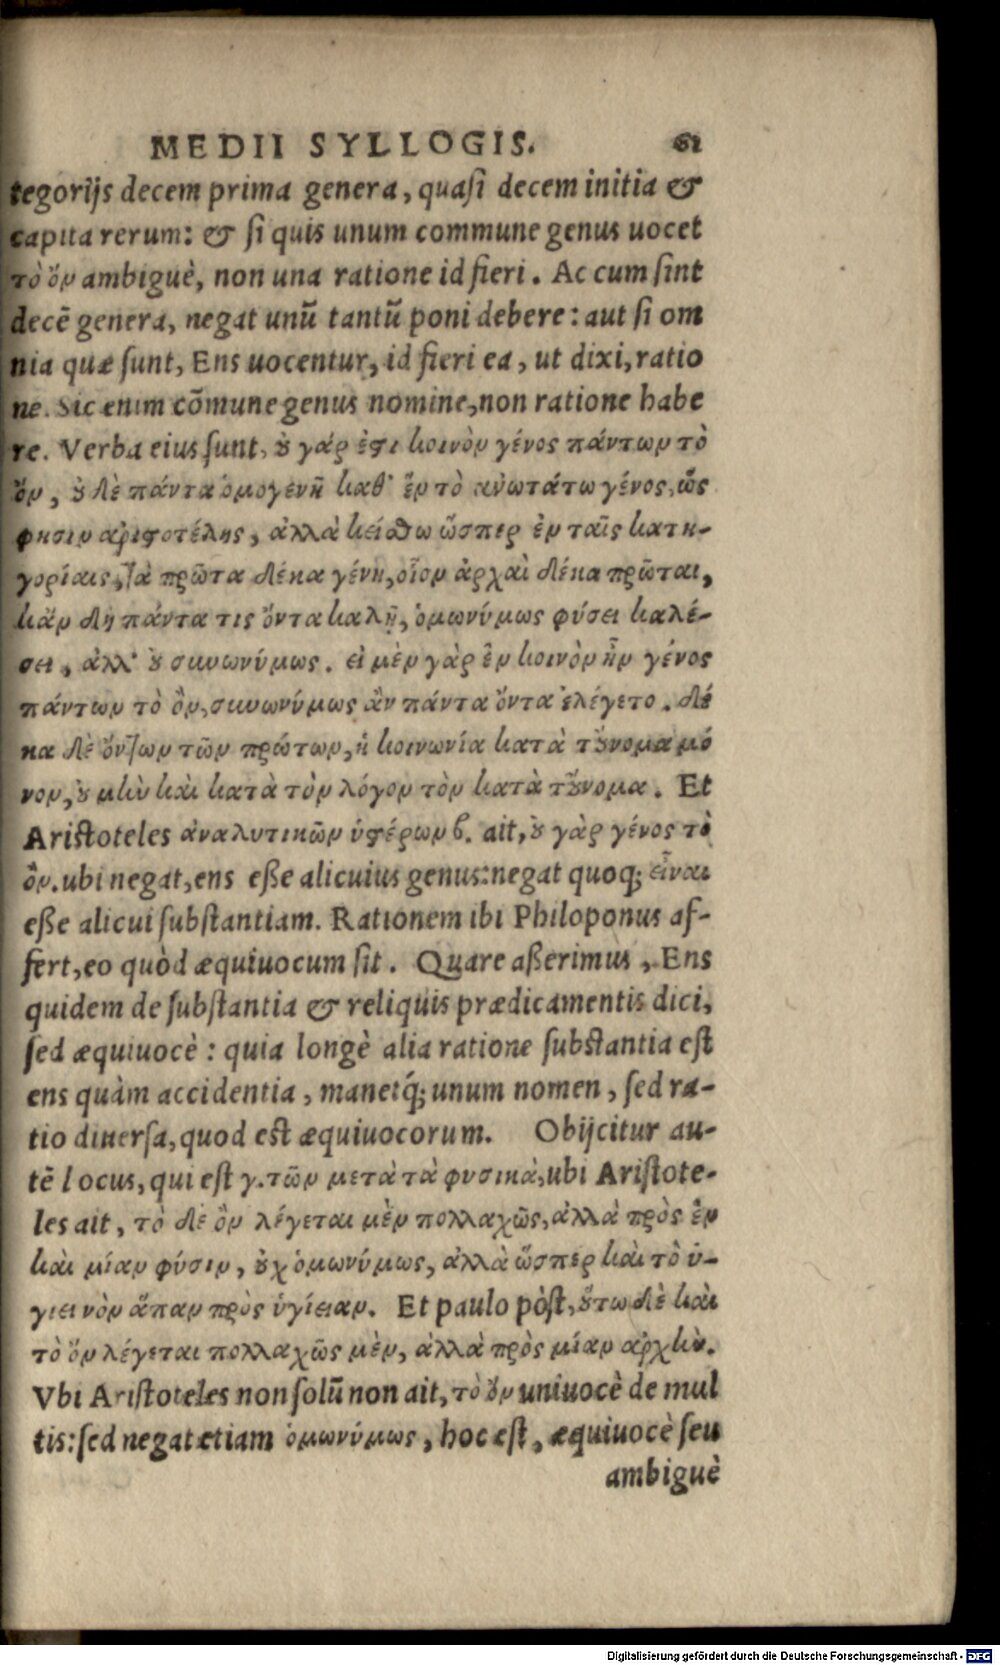 MEDII SYLLOGIS. 61
tegorijs decem prima genera, quasi decem initia &
capita rerum: & si quis unum commune genus uocet
τὸ ὂν ambiguè, non una ratione id fieri. Ac cum sint
decē genera, negat unū tantū poni debere: aut si om
nia quæ sunt, Ens uocentur, id fieri ea, ut dixi, ratio
ne. Sic enim cōmune genus nomine, non ratione habe
re. Verba eius sunt, ȣ γάρ ἐϛι κοινὸν γένος πάντων τὸ
ὄν, ȣ δὲ πάντα ὁμογενῆ καθ' ἓν τὸ ἀνωτάτω γένος, ὥς
φησιν ἀριϛοτέλης, ἀλλὰ κείσθω ὥσπερ ἐν ταῖς κατη-
γορίαις, τὰ πρῶτα δέκα γένη, οἷον ἀρχαὶ δέκα πρῶται,
κἂν δὴ πάντα τις ὄντα καλῇ, ὁμωνύμως φύσει καλέ-
σει, ἀλλ' ȣ συνωνύμως. εἰ μὲν γὰρ ἓν κοινὸν ἦν γένος
πάντων τὸ ὂν, συνωνύμως ἂν πάντα ὄντα ἐλέγετο. δέ
κα δὲ ὄντων τῶν πρώτων, ἡ κοινωνία κατὰ τȣ̓́νομα μό
νον, ȣ μὴν καὶ κατὰ τὸν λόγον τὸν κατὰ τȣ̓́νομα. Et
Aristoteles ἀναλυτικῶν ὑϛέρων β. ait, ȣ γὰρ γένος τὸ
ὂν. ubi negat, ens esse alicuius genus: negat quoq; εἶναι
esse alicui substantiam. Rationem ibi Philoponus af-
fert, eo quòd æquiuocum sit. Quare asserimus, Ens
quidem de substantia & reliquis prædicamentis dici,
sed æquiuocè: quia longè alia ratione substantia est
ens quàm accidentia, manetq́; unum nomen, sed ra-
tio diuersa, quod est æquiuocorum. Obijcitur au-
tē locus, qui est γ. τῶν μετὰ τὰ φυσικὰ, ubi Aristote-
les ait, τὸ δὲ ὂν λέγεται μὲν πολλαχῶς, ἀλλὰ πρὸς ἓν
καὶ μίαν φύσιν, ȣχ ὁμωνύμως, ἀλλὰ ὥσπερ καὶ τὸ ὑ-
γιεινὸν ἅπαν πρὸς ὑγίειαν. Et paulo pòst, ȣ̔́τω δὲ καὶ
τὸ ὂν λέγεται πολλαχῶς μὲν, ἀλλὰ πρὸς μίαν ἀρχὴν.
Vbi Aristoteles non solū non ait, τὸ ὂν uniuocè de mul
tis: sed negat etiam ὁμωνύμως, hoc est, æquiuocè seu
ambiguè
Digitalisierung gefördert durch die Deutsche Forschungsgemeinschaft - DFG